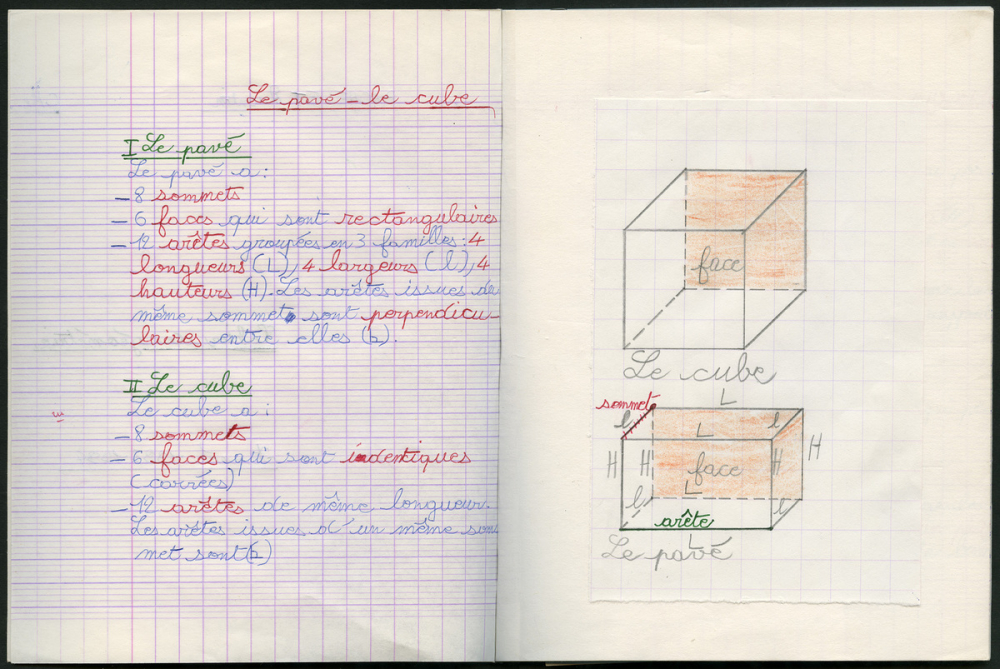 Le pavé - le cube
I Le pavé
Le pavé a :
- 8 sommets
- 6 faces qui sont rectangulaires
- 12 arêtes groupées en 3 familles : 4
longueurs (L), 4 largeurs (l), 4
hauteurs (H). Les arêtes issues du
même sommet sont perpendicu-
laires entre elles (b).
II Le cube
Le cube a :
- 8 sommets
- 6 faces qui sont indentiques
(carrées)
- 12 arêtes de même longueur.
Les arêtes issues d'un même som
met sont (b)
face
Le cube
L
sommet
l
L
l
H
H
H
H
face
L
l
l
arête
L
Le pavé